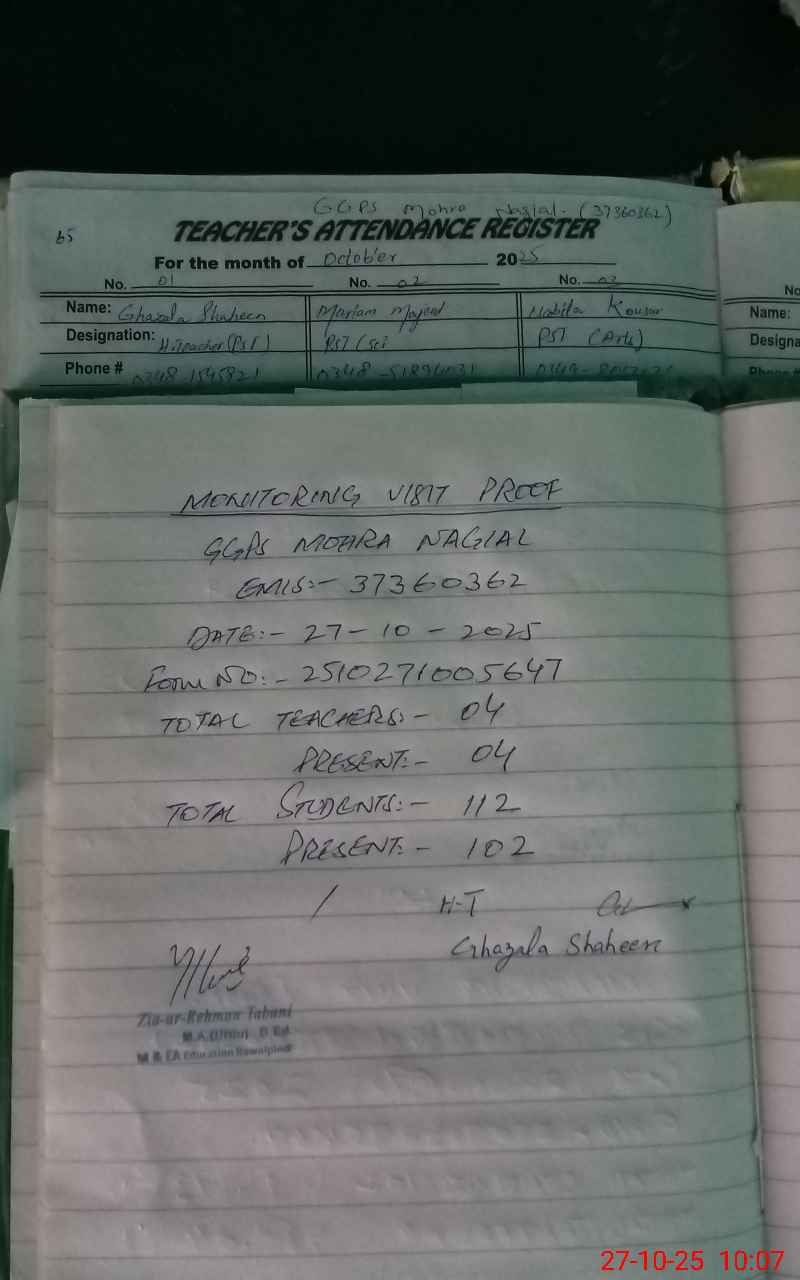 GGPS Mohra Nagial. (37360362)
65
TEACHER'S ATTENDANCE REGISTER
For the month of October 2025
No. 01 No. 02 No. 03
Name: Ghazala Shaheen Mariam Majeed Kousar
Name:
Designation: PST (Sci PST (Arts)
Designa
Phone # 0348 1545821 0348
MONITORING VISIT PROOF
GGPS MOHRA NAGIAL
EMIS:- 37360362
DATE:- 27-10-2025
Form NO:- 2510271005647
TOTAL TEACHERS:- 04
PRESENT:- 04
TOTAL STUDENTS:- 112
PRESENT:- 102
/ H-T
Ghazala Shaheen
Zia-ur-Rehman Tabani
M.A.(Urdu) B Ed
M & EA Education Rawalpindi
27-10-25 10:07